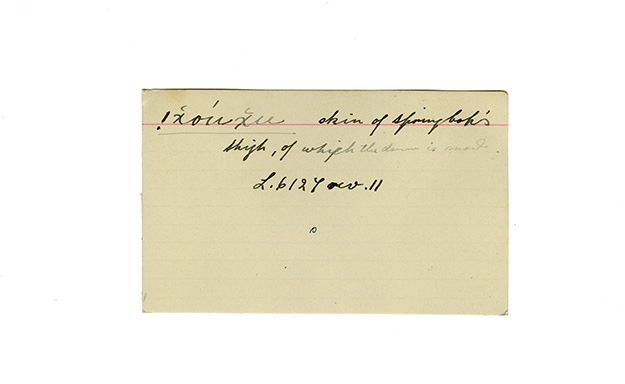 skin of springbok's
thigh, of which the drum is made.
L.6127 rev.11